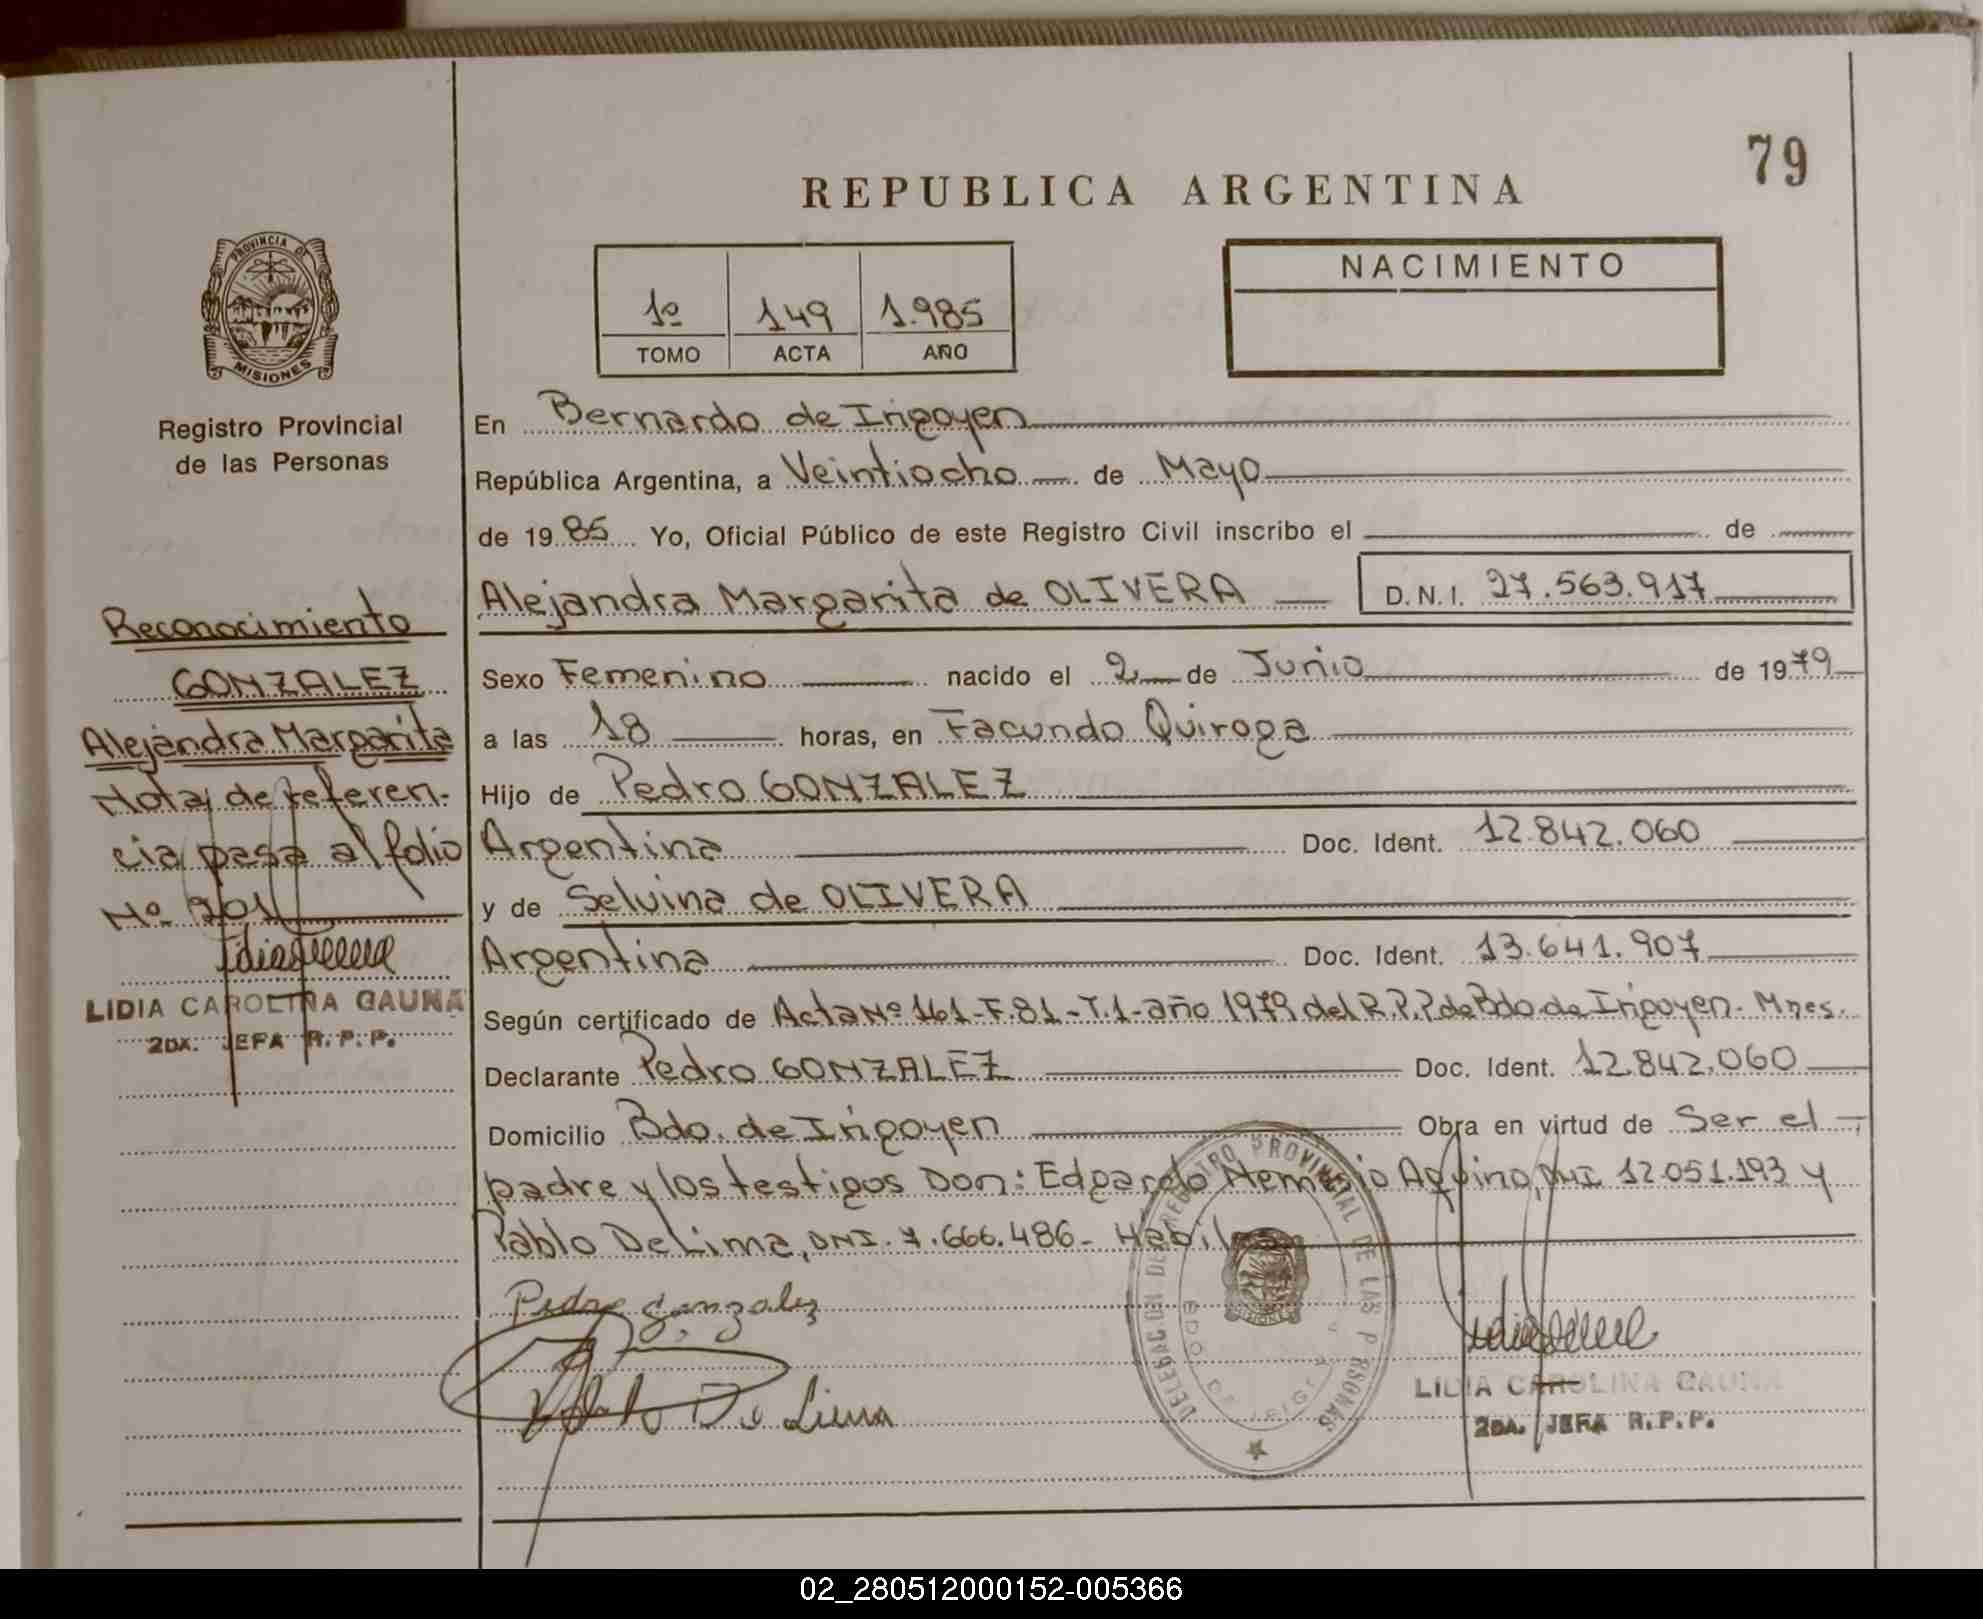 79
REPUBLICA ARGENTINA
PROVINCIA DE
MISIONES
Registro Provincial
de las Personas
1º 149 1.985
TOMO ACTA AÑO
NACIMIENTO
En Bernardo de Irigoyen
República Argentina, a Veintiocho de Mayo
de 1985 Yo, Oficial Público de este Registro Civil inscribo el de
Alejandra Margarita de OLIVERA D.N.I. 27.563.917
Sexo Femenino nacido el 2 de Junio de 1979
a las 18 horas, en Facundo Quiroga
Hijo de Pedro GONZALEZ
Argentina Doc. Ident. 12.842.060
y de Selvina de OLIVERA
Argentina Doc. Ident. 13.641.907
Según certificado de Acta Nº 161-F.81-T.1-año 1979 del R.P.P de Bdo. de Irigoyen. Mnes.
Declarante Pedro GONZALEZ Doc. Ident. 12.842.060
Domicilio Bdo. de Irigoyen Obra en virtud de Ser el
padre y los testigos Don: Edgardo Nemesio Aquino, DNI 12.051.193 y
Pablo De Lima, DNI. 7.666.486- Habil
Pedro Gonzalez
Pablo De Lima
DELEGACION DEL REGISTRO PROVINCIAL DE LAS PERSONAS
LIDIA CAROLINA GAUNA
2DA. JEFA R.P.P.
Reconocimiento
GONZALEZ
Alejandra Margarita
Nota de referen-
cia pasa al folio
Nº 201
LIDIA CAROLINA GAUNA
2DA. JEFA R.P.P.
02_280512000152-005366